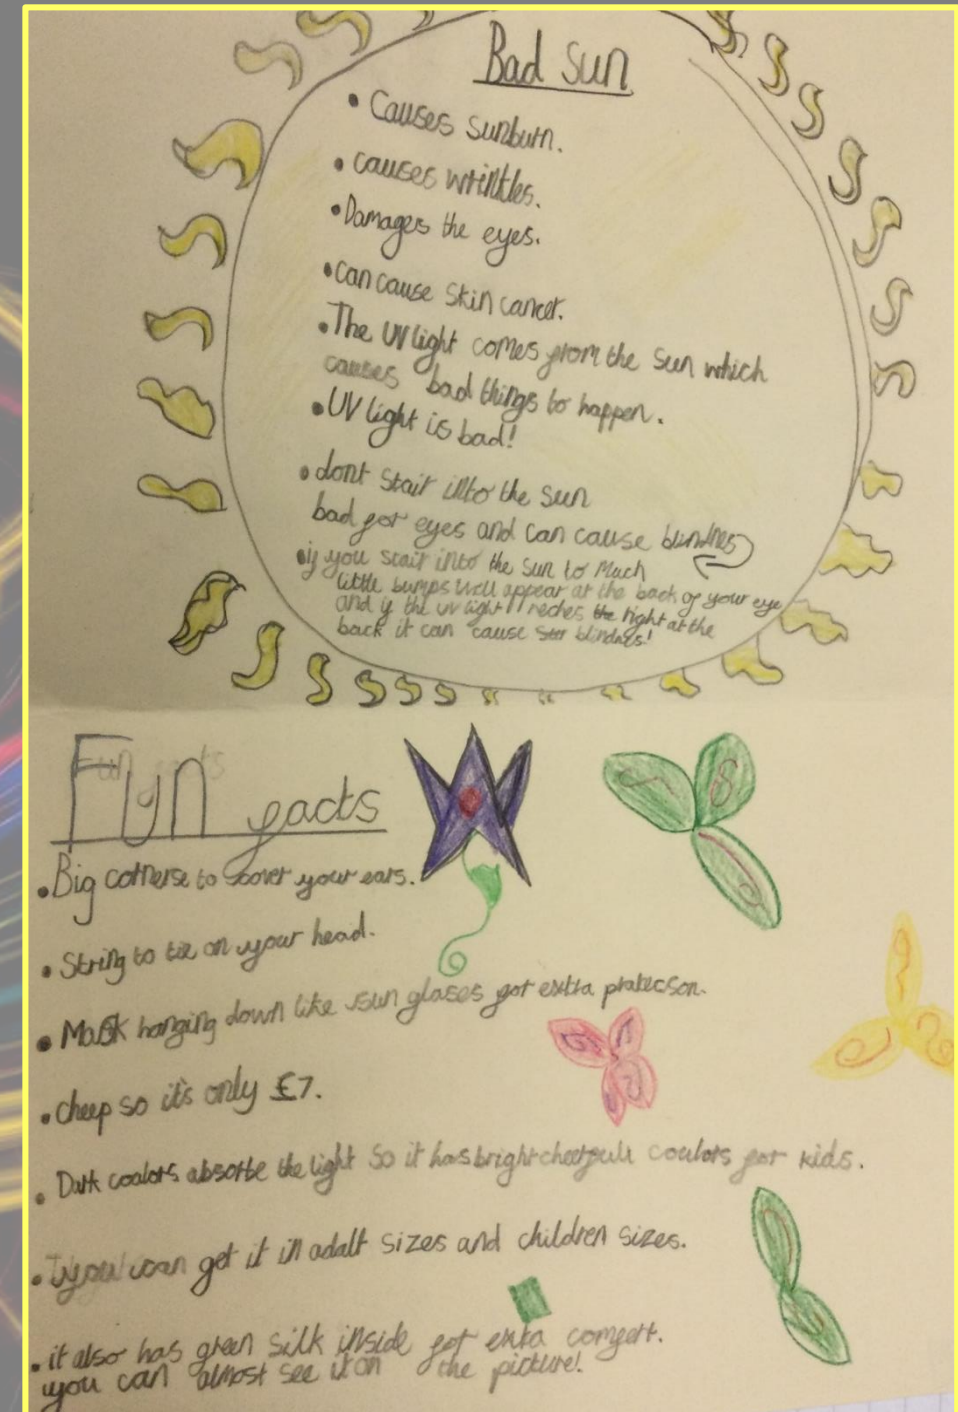 Bad Sun
• Causes sunburn.
• causes wrinkles.
• Damages the eyes.
• can cause skin cancer.
• The UV light comes from the sun which
causes bad things to happen.
• UV light is bad!
• dont stair into the sun
bad for eyes and can cause blindnes
• if you stair into the sun to much
little bumps well appear at the back of your eye
and if the uv light reches the right at the
back it can cause blindnes!
Fun facts
• Big cornerse to cover your ears.
• String to tie on your head.
• Mask hanging down like sun glases for extra protecson.
• cheep so it's only £7.
• Dark coalors absorbe the light so it has bright cheerfull coulors for kids.
• you can get it in adalt sizes and children sizes.
• it also has green silk inside for extra comfert.
you can almost see it on the picture!